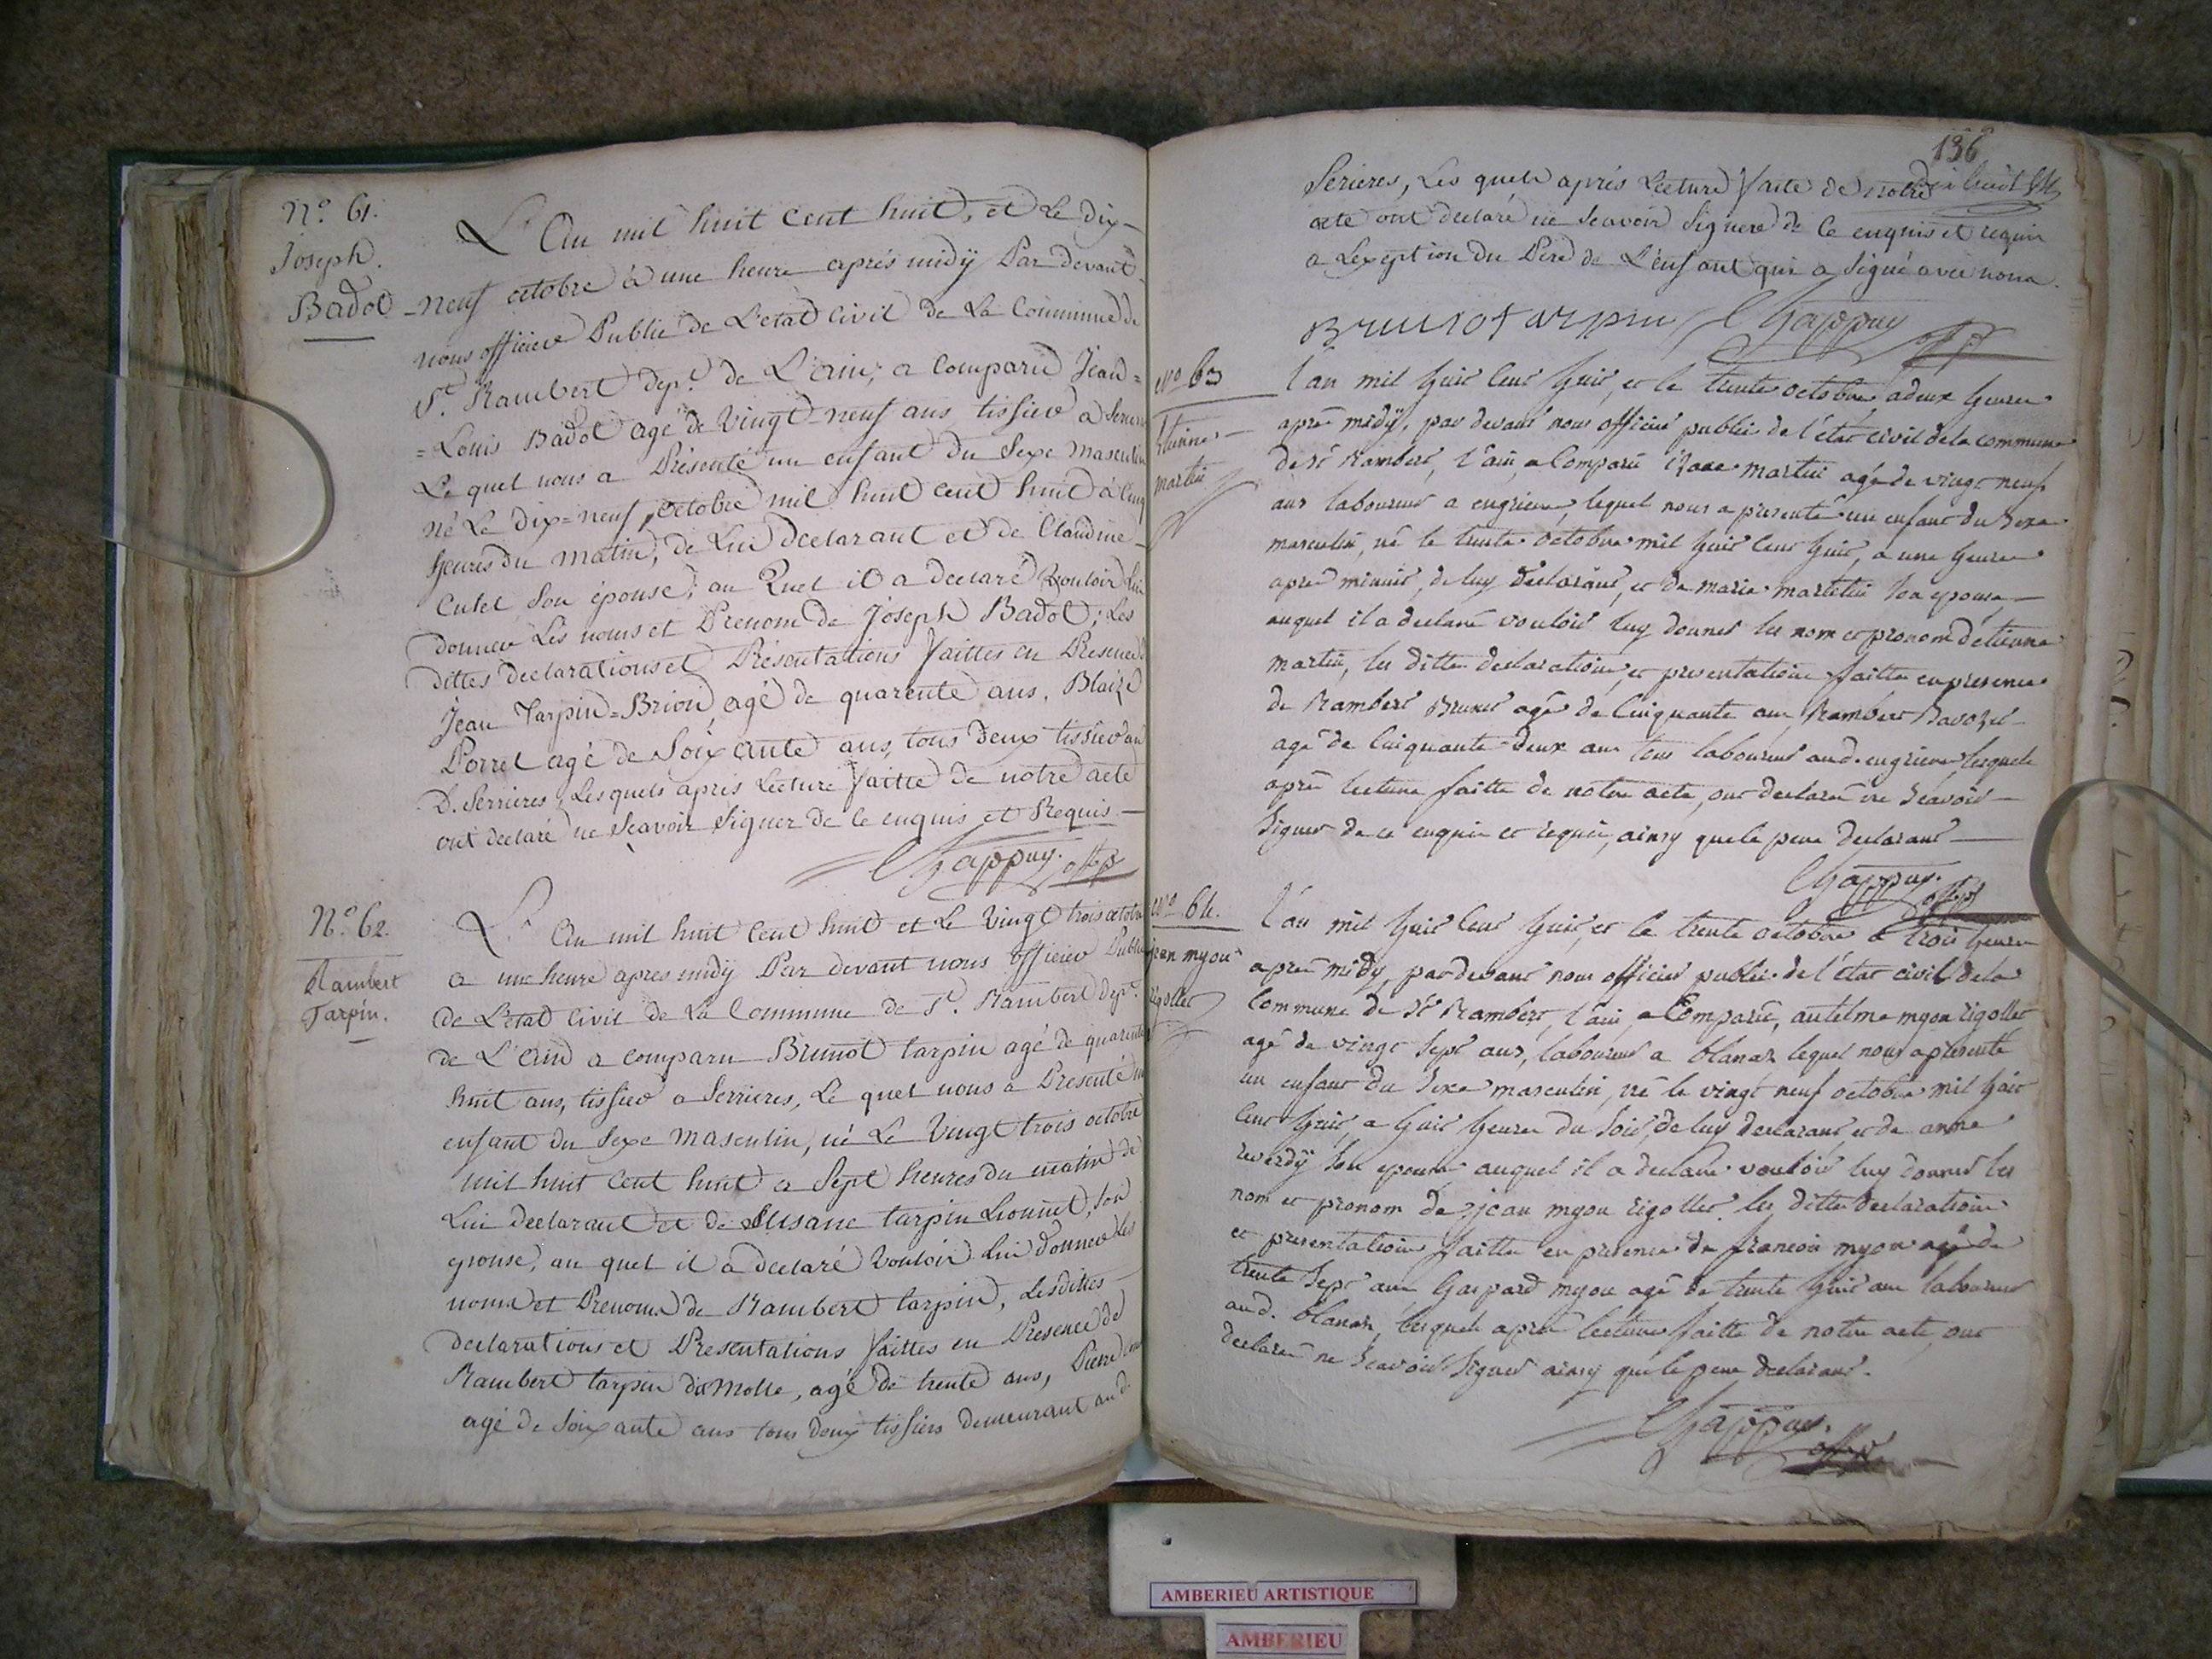 N.º 61.
Joseph.
Badot
L'An mil huit cent huit, et Le dix-
-neuf octobre à une heure aprés midÿ Par devant
nous officier Public de L'etat Civil de La Commune de
S.t Rambert dep.t de L'ain; a Comparu Jean =
= Louis Badot agé de Vingt-neuf ans tissier a
Le quel nous a Présenté un enfant du Sexe masculin
né Le dix=neuf octobre mil huit cent huit à Cinq
heures du matin, de Lui declarant et de Claudine
Cutet Son épouse; au Quel il a declaré Vouloir Lui
donner Les noms et Prenom de Joseph Badot; Les
dittes declarations et Présentations faittes en Presence de
Jean Tarpin=Brion, agé de quarente ans, Blaize
Porret agé de Soixante ans, tous deux tissier au
D. Serrieres, Lesquels apris Lecture faitte de notre acte
ont declaré ne Scavoir Signer de Ce enquis et Requis —
Chappuy. off. p
N.º 62.
Rambert
Tarpin.
L'An mil huit Cent huit et Le Vingt trois octobre
a une heure apres midÿ Par devant nous officier Public
de L'etat Civil de La Commune de S.t Rambert dep.t
de L'ain a comparu Brunot tarpin agé de quarente
huit ans, tissier a Serrieres, Le quel nous a Presenté un
enfant du Sexe masculin, né Le Vingt trois octobre
mil huit Cent huit a Sept heures du matin de
Lui declarant et de Susane tarpin Lionnet, Son
epouse, au quel il a declaré Vouloir Lui donner Les
noms et Prenoms de Rambert tarpin, Lesdittes
declarations et Presentations faittes en Presence de
Rambert tarpin du molle, agé de trente ans, Pierre
agé de Soixante ans tous deux tissiers demeurant aud.
136
Serieres, Les quels aprés Lecture faite de notre
acte ont declaré ne Scavoir Signere de Ce enquis et requis
a Lexeption du Pere de L'enfant qui a Signé avec nous.
Brunot arpin Chappuy
N.º 63
Etienne
martin
l'an mil huit Cent huit, et le trente octobre a deux heures
apré midÿ, par devant nous officier public de l'état civil de la commune
de S.t Rambert, l'ain, a Comparu martin agé de vingt neuf
ans laboureur a engrieux, lequel nous a presenté un enfant du Sexe
masculin, né le trente octobre mil huit Cent huit, a une heure
apré minuit, de luy declarant, et de marie martelin Son epouse —
auquel il a declaré vouloir luy donner les nom et pronom d'etienne
martin, les dittes declaration, et presentation faitte en presence
de Rambert Brunet agé de Cinquante ans Rambert Savozet
agé de Cinquante deux ans tous laboureur aud. engrieux lesquels
apré lecture faitte de notre acte, ont declaré ne Scavoir —
Signer de ce enquis et requis, ainsy que le pere declarant —
Chappuy. off. p
N.º 64.
jean myon
rigollet
l'an mil huit Cent huit, et le trente octobre a trois heures
apré midÿ, par devant nous officier public de l'état civil de la
Commune de S.t Rambert, l'ain, a Comparu, antelme myon rigollet
agé de vingt Sept ans, laboureur a blanas lequel nous a presenté
un enfant du Sexe masculin, né le vingt neuf octobre mil huit
Cent huit a huit heures du Soir, de luy declarant, et de anne
reverdÿ Son epouse auquel il a declaré vouloir luy donner les
nom et pronom de jean myon rigollet. les dittes declaration
et presentation faitte en presence de francois myon agé de
trente Sept ans Gaspard myon agé de trente huit ans laboureur
aud. blanas, lesquels apré lecture faitte de notre acte, ont
declaré ne Scavoir Signer ainsy que le pere declarant.
Chappuy. off. p
AMBERIEU ARTISTIQUE
AMBERIEU